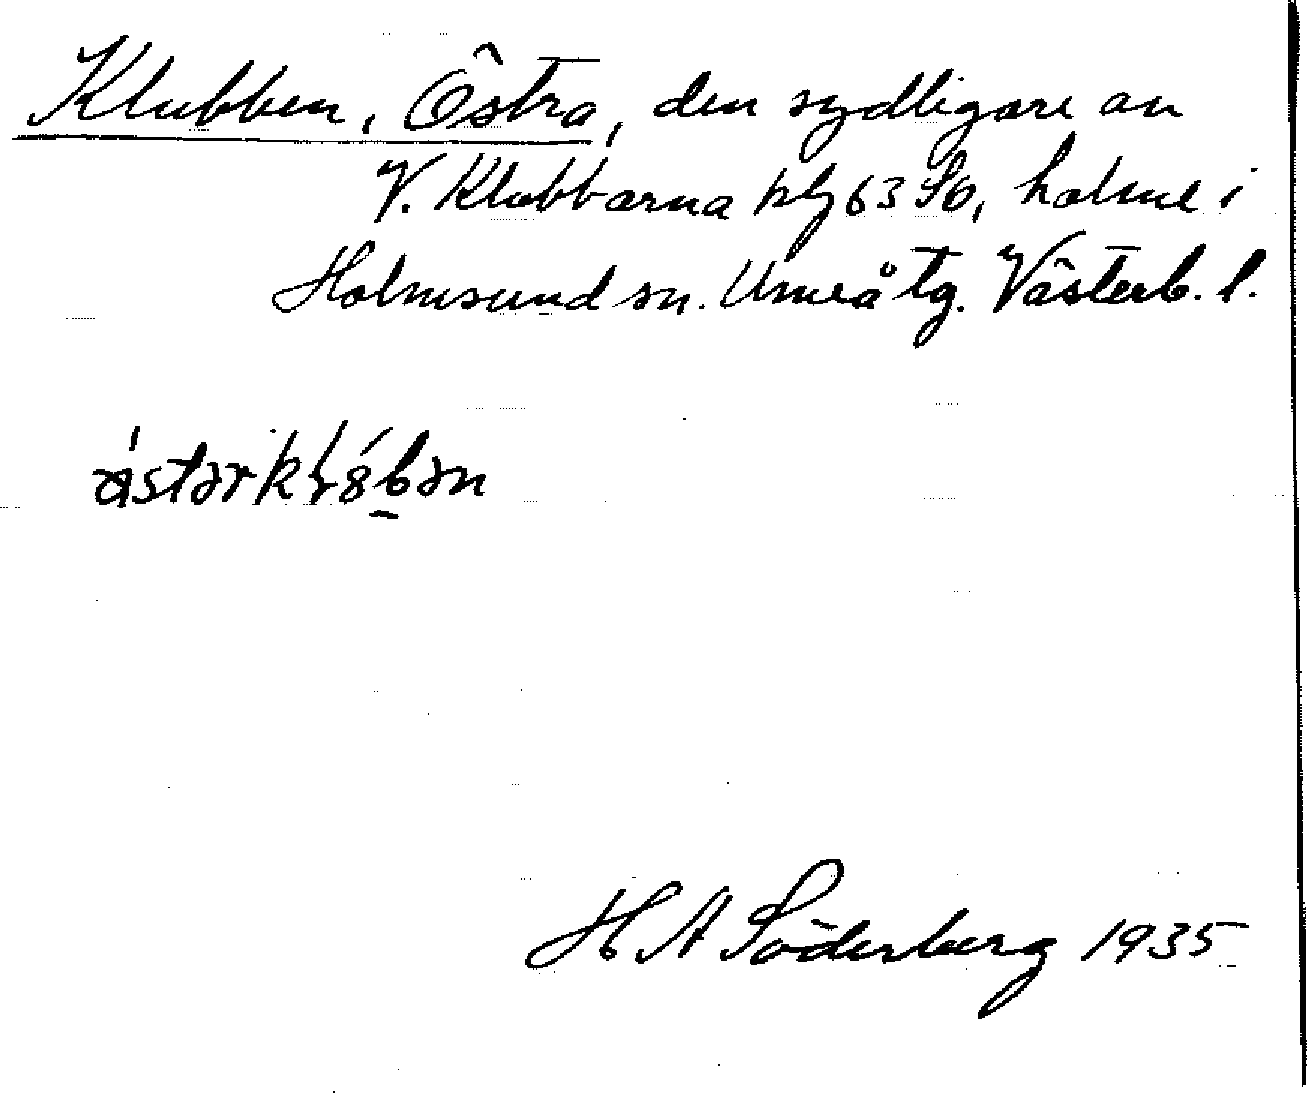 Klubben, Östra, den sydligare av
V. Klubbarna blz 63 SO, holme i
Holmsund sn. Umeå tg. Västerb. l.
H A Söderberg 1935